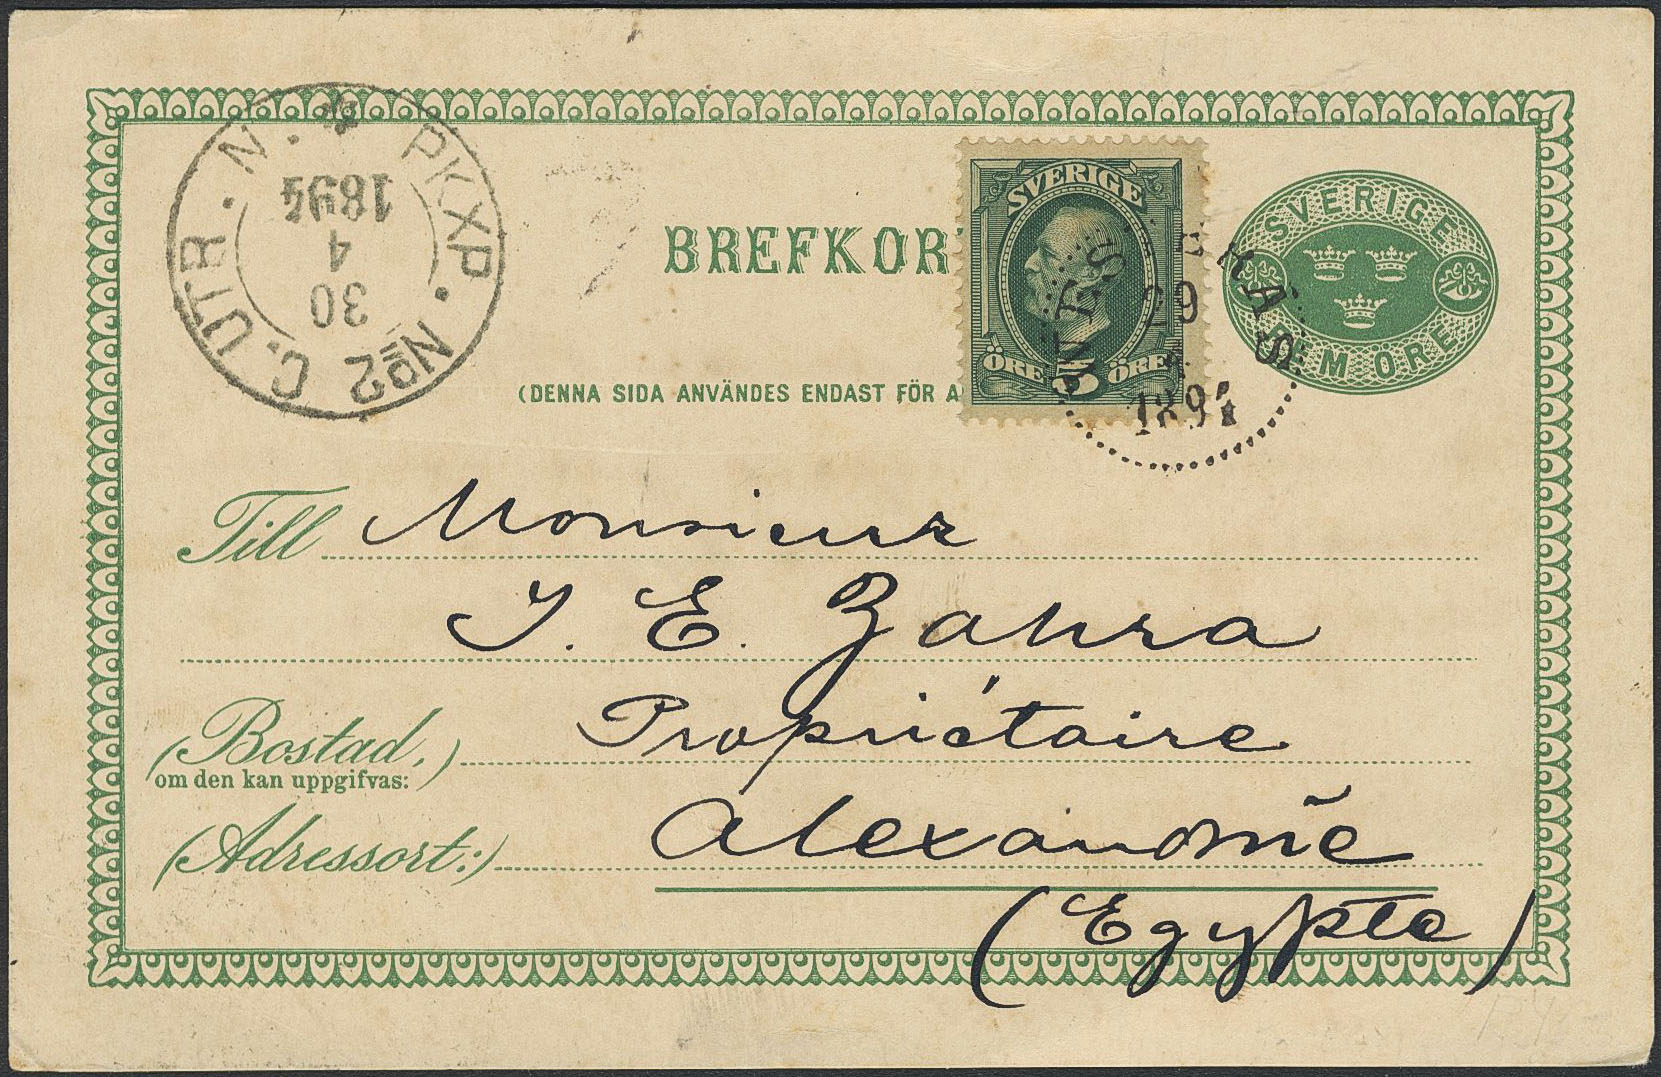 BREFKOR
(DENNA SIDA ANVÄNDES ENDAST FÖR A
SVERIGE
ÖRE 5 ÖRE
SVERIGE
FEM ÖRE
VESTERÅS
29
4
1894
PKXP. No 2 C. UTR. N.
30
4
1894
Till Monsieur
J. E. Zahra
(Bostad.) Propriétaire
om den kan uppgifvas:
(Adressort:) Alexandrie
(Egypte)